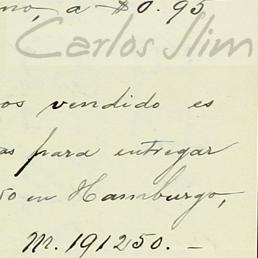 no, a $0.95
Carlos Slim
os vendido es
as para entregar
to en Hamburgo,
M. 191250. -